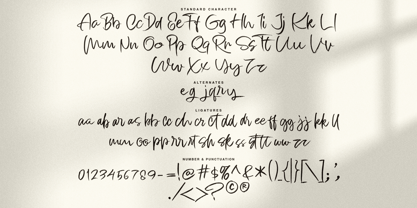 STANDARD CHARACTER
Aa Bb Cc Dd Ee Ff Gg Hh Ii Jj Kk Ll
Mm Nn Oo Pp Qq Rr Ss Tt Uu Vv
Ww Xx Yy Zz
ALTERNATES
e g j q r y
LIGATURES
aa ab ar as bb cc ch cr ct dd dr ee ff gg jj kk ll
mm om oo pp rr rt sh sk ss st tt uu zz
NUMBER & PUNCTUATION
0123456789-=!@#$%^&*(){}[\];',
./<>?©®